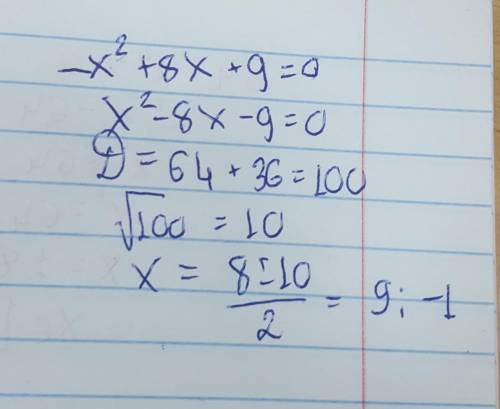 -x² + 8x + 9 = 0
x² - 8x - 9 = 0
D = 64 + 36 = 100
√100 = 10
x = (8 ± 10)/2 = 9; -1